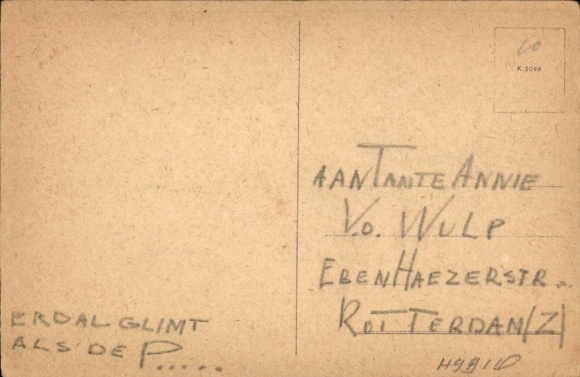 K 5098
AAN TANTE ANNIE
V.D. WULP
EBEN HAEZERSTR.
ROTTERDAN(Z)
ERDAL GLIMT
ALS DE P.....